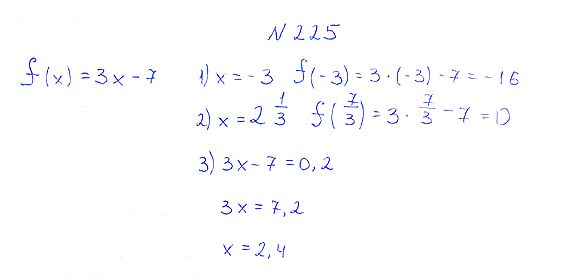 N 225
f(x) = 3x - 7 1) x = -3 f(-3) = 3 · (-3) - 7 = -16
2) x = 2 1/3 f(7/3) = 3 · 7/3 - 7 = 0
3) 3x - 7 = 0,2
3x = 7,2
x = 2,4